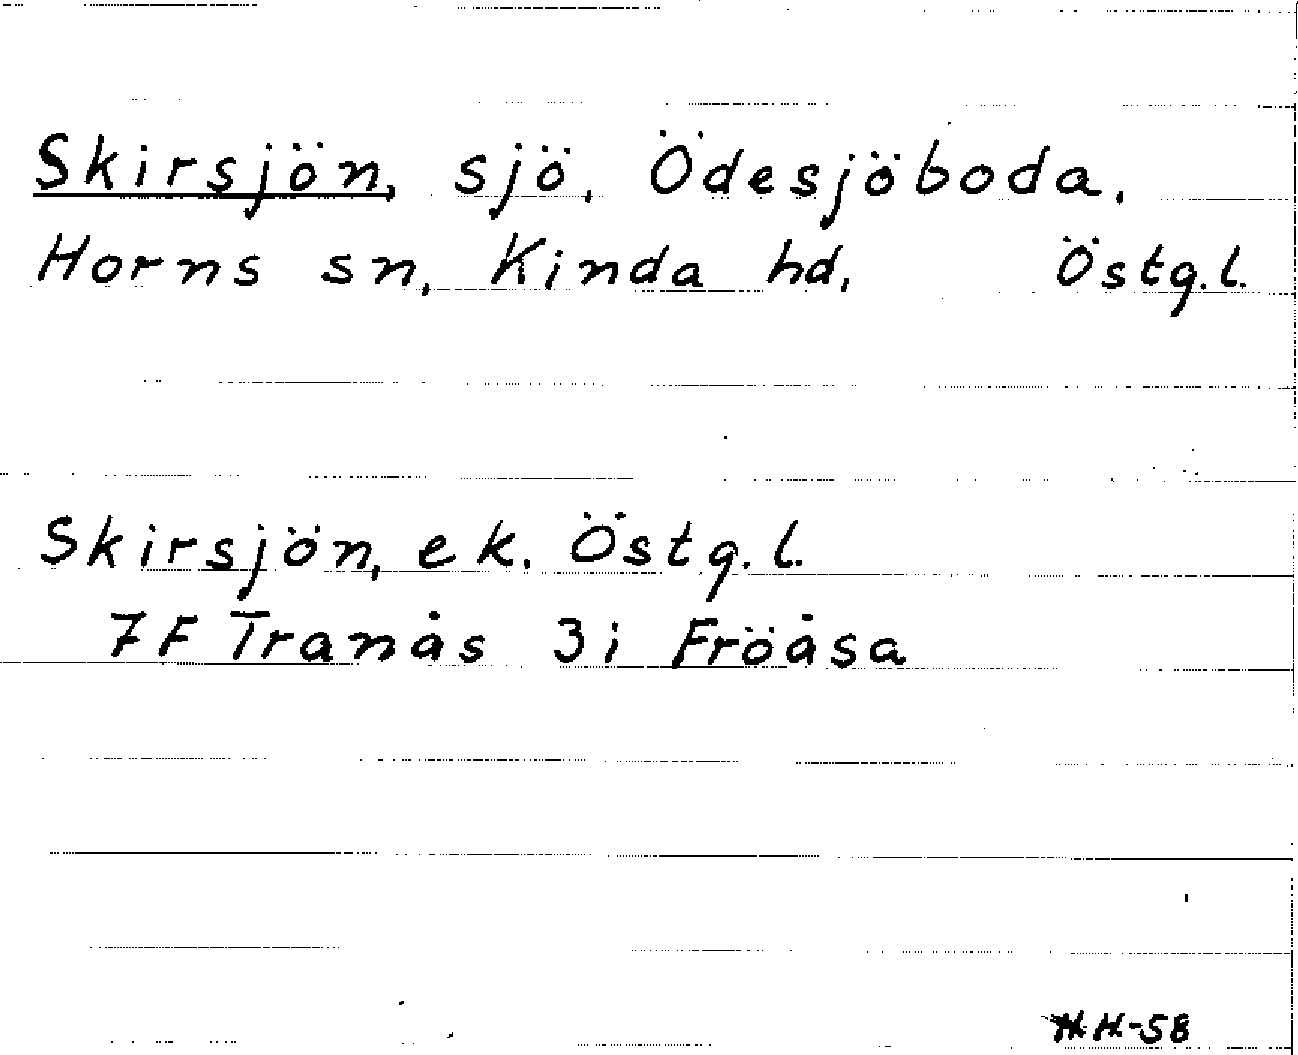 Skirsjön, sjö, Ödesjöboda,
Horns sn, Kinda hd, Östg.l.
Skirsjön, ek. Östg.l.
7F Tranås 3i Fröåsa
H-58